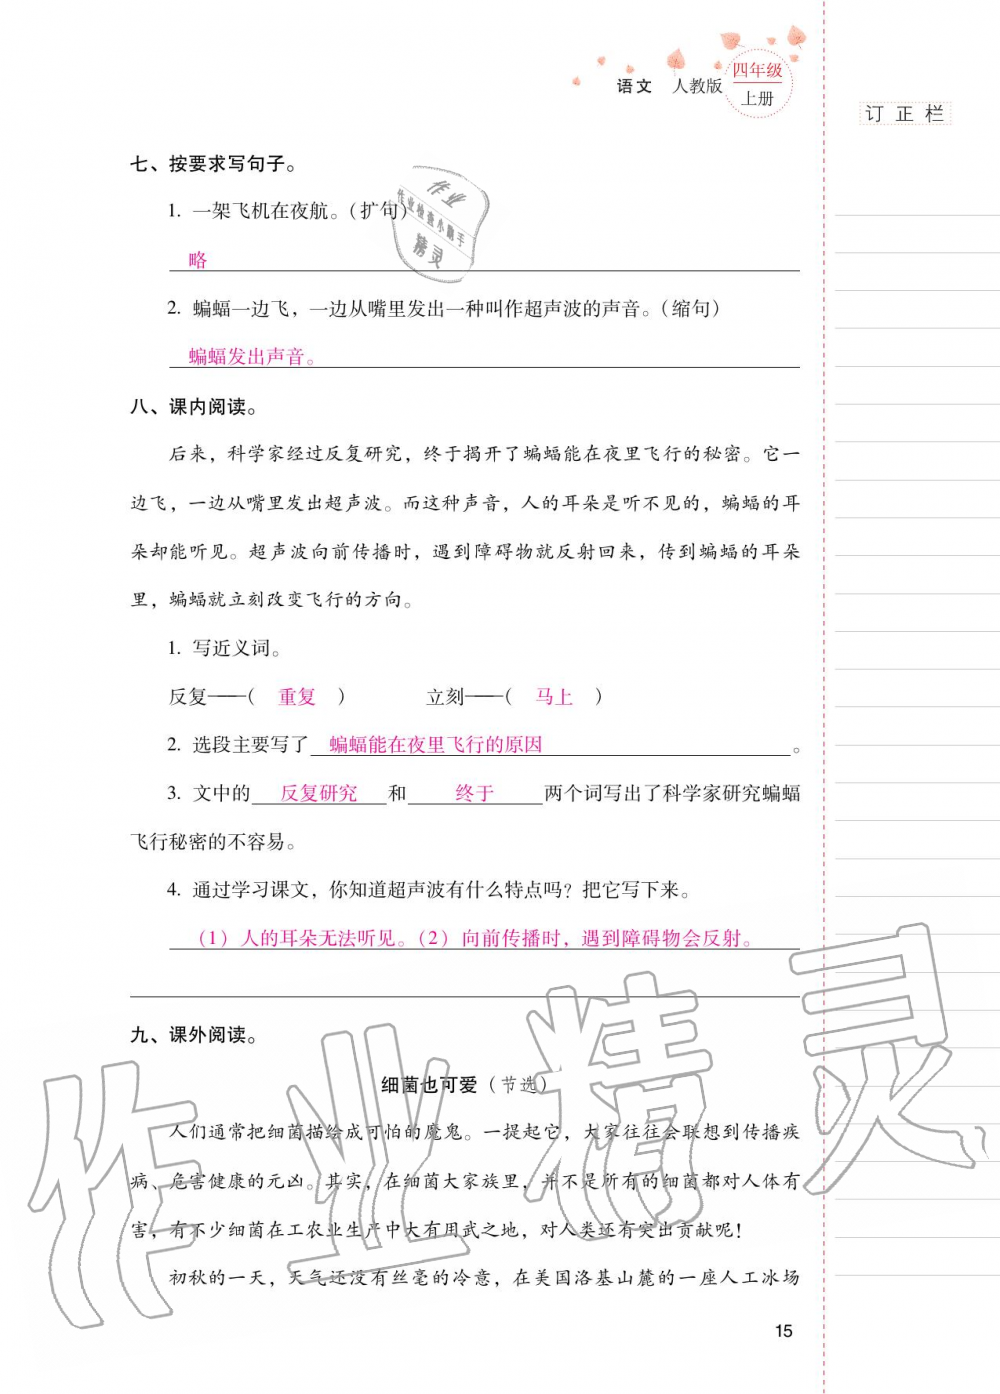 语文 人教版 四年级
上册
订正栏
七、按要求写句子。
1. 一架飞机在夜航。(扩句)
略
2. 蝙蝠一边飞，一边从嘴里发出一种叫作超声波的声音。(缩句)
蝙蝠发出声音。
八、课内阅读。
后来，科学家经过反复研究，终于揭开了蝙蝠能在夜里飞行的秘密。它一
边飞，一边从嘴里发出超声波。而这种声音，人的耳朵是听不见的，蝙蝠的耳
朵却能听见。超声波向前传播时，遇到障碍物就反射回来，传到蝙蝠的耳朵
里，蝙蝠就立刻改变飞行的方向。
1. 写近义词。
反复——( 重复 ) 立刻——( 马上 )
2. 选段主要写了 蝙蝠能在夜里飞行的原因 。
3. 文中的 反复研究 和 终于 两个词写出了科学家研究蝙蝠
飞行秘密的不容易。
4. 通过学习课文，你知道超声波有什么特点吗？把它写下来。
（1）人的耳朵无法听见。（2）向前传播时，遇到障碍物会反射。
九、课外阅读。
细菌也可爱（节选）
人们通常把细菌描绘成可怕的魔鬼。一提起它，大家往往会联想到传播疾
病、危害健康的元凶。其实，在细菌大家族里，并不是所有的细菌都对人体有
害，有不少细菌在工农业生产中大有用武之地，对人类还有突出贡献呢！
初秋的一天，天气还没有丝毫的冷意，在美国洛基山麓的一座人工冰场
15
作业
作业检查小助手
精灵
作业精灵